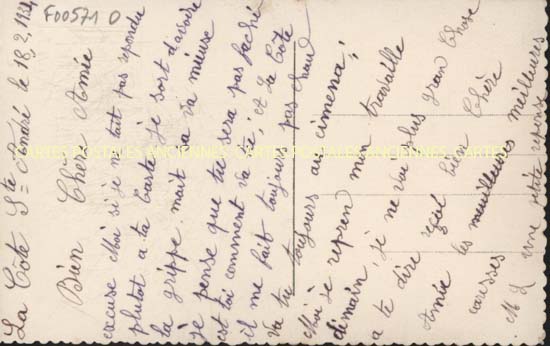 F00571 0
La Côte St André le 18.2.1934
Bien Cher Amie
excuse Moi si je ne tait pas repondu
plutot a ta Carte je sort d'avoir
la grippe mait sa va mieuse
je pense que tu sera pas faché
est toi comment va tu, a La Cote
il me fait toujours pas chaud
va tu toujours au cinema;
Moi je repren mon travaille
démain, je ne voi plus gran Chose
a te dire reçoi bien Chère
Amie les meuilleures meilleures
caresses
M L une petite repons
CARTES POSTALES ANCIENNES CARTES POSTALES ANCIENNES CARTES POSTALES ANCIENNES CARTES